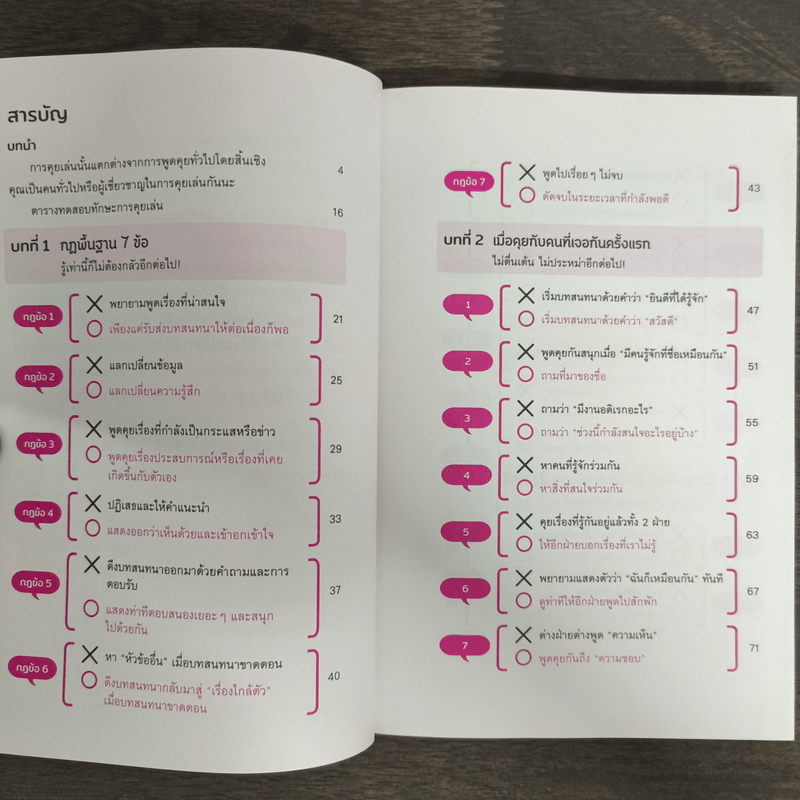 สารบัญ
บทนำ
การคุยเล่นนั้นแตกต่างจากการพูดคุยทั่วไปโดยสิ้นเชิง 4
คุณเป็นคนทั่วไปหรือผู้เชี่ยวชาญในการคุยเล่นกันนะ
ตารางทดสอบทักษะการคุยเล่น 16
บทที่ 1 กฎพื้นฐาน 7 ข้อ
รู้เท่านี้ก็ไม่ต้องกลัวอีกต่อไป!
กฎข้อ 1
พยายามพูดเรื่องที่น่าสนใจ
เพียงแค่รับส่งบทสนทนาให้ต่อเนื่องก็พอ
21
กฎข้อ 2
แลกเปลี่ยนข้อมูล
แลกเปลี่ยนความรู้สึก
25
กฎข้อ 3
พูดคุยเรื่องที่กำลังเป็นกระแสหรือข่าว
พูดคุยเรื่องประสบการณ์หรือเรื่องที่เคย
เกิดขึ้นกับตัวเอง
29
กฎข้อ 4
ปฏิเสธและให้คำแนะนำ
แสดงออกว่าเห็นด้วยและเข้าอกเข้าใจ
33
กฎข้อ 5
ดึงบทสนทนาออกมาด้วยคำถามและการ
ตอบรับ
แสดงท่าทีตอบสนองเยอะ ๆ และสนุก
ไปด้วยกัน
37
กฎข้อ 6
หา "หัวข้ออื่น" เมื่อบทสนทนาขาดตอน
ดึงบทสนทนากลับมาสู่ "เรื่องใกล้ตัว"
เมื่อบทสนทนาขาดตอน
40
กฎข้อ 7
พูดไปเรื่อย ๆ ไม่จบ
ตัดจบในระยะเวลาที่กำลังพอดี
43
บทที่ 2 เมื่อคุยกับคนที่เจอกันครั้งแรก
ไม่ตื่นเต้น ไม่ประหม่าอีกต่อไป!
1
เริ่มบทสนทนาด้วยคำว่า "ยินดีที่ได้รู้จัก"
เริ่มบทสนทนาด้วยคำว่า "สวัสดี"
47
2
พูดคุยกันสนุกเมื่อ "มีคนรู้จักที่ชื่อเหมือนกัน"
ถามที่มาของชื่อ
51
3
ถามว่า "มีงานอดิเรกอะไร"
ถามว่า "ช่วงนี้กำลังสนใจอะไรอยู่บ้าง"
55
4
หาคนที่รู้จักร่วมกัน
หาสิ่งที่สนใจร่วมกัน
59
5
คุยเรื่องที่รู้กันอยู่แล้วทั้ง 2 ฝ่าย
ให้อีกฝ่ายบอกเรื่องที่เราไม่รู้
63
6
พยายามแสดงตัวว่า "ฉันก็เหมือนกัน" ทันที
ดูท่าทีให้อีกฝ่ายพูดไปสักพัก
67
7
ต่างฝ่ายต่างพูด "ความเห็น"
พูดคุยกันถึง "ความชอบ"
71